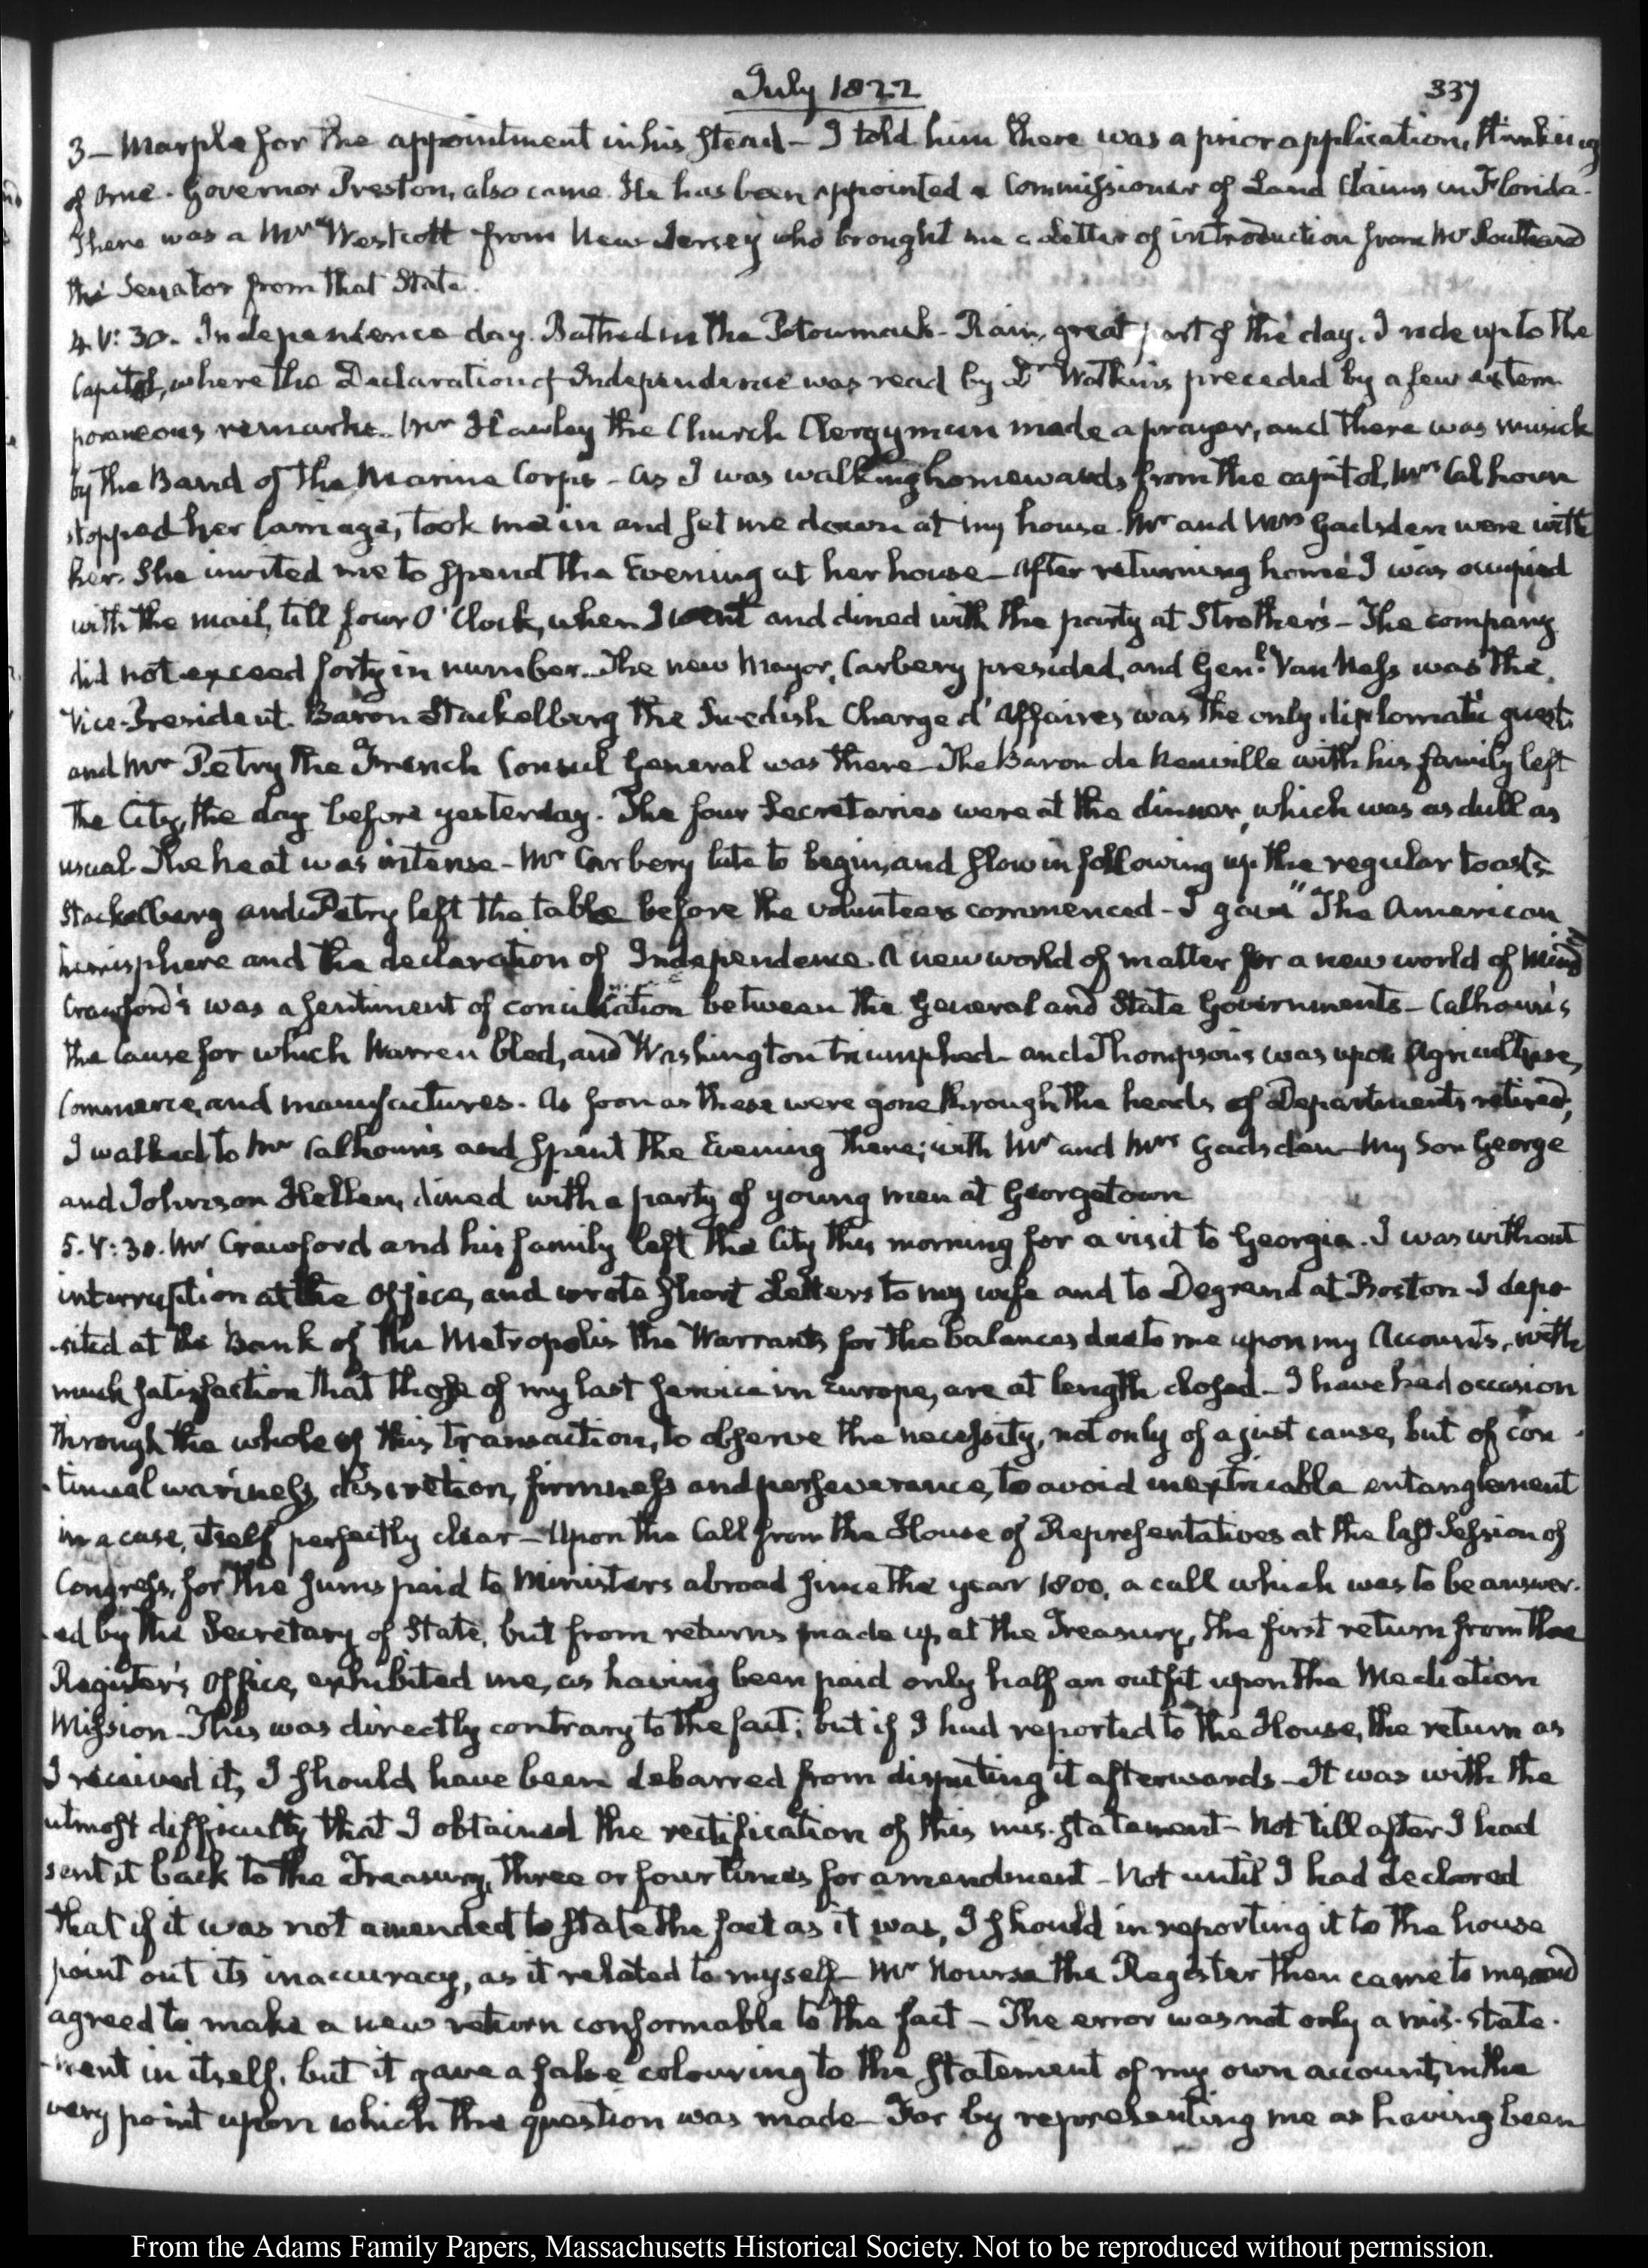 July 1822
337
3 — Marple for the appointment in his stead — I told him there was a prior application, thinking
of Orne. Governor Preston, also came. He has been appointed a Commissioner of Land Claims in Florida.
There was a Mr Westcott from New Jersey who brought me a Letter of introduction from Mr Southard
the Senator from that State.
4. V: 30. Independence day. Bathed in the Potowmack — Rain, great part of the day. I rode up to the
Capitol, where the Declaration of Independence was read by Dr Watkins preceded by a few extem-
poraneous remarks. Mr Hawley the Church Clergyman made a prayer, and there was musick
by the Band of the Marine Corps — As I was walking homewards from the capitol, Mrs Calhoun
stopped her Carriage, took me in and set me down at my house. Mr and Mrs Gadsden were with
her. She invited me to spend the Evening at her house — After returning home I was occupied
with the mail, till four O'Clock, when I went and dined with the party at Strother's — The company
did not exceed forty in number. The new Mayor, Carbery presided, and Genl. Van Ness was the
Vice-President. Baron Stackelberg the Swedish Chargé d'Affaires was the only diplomatic guest
and Mr Petry the French Consul General was there — The Baron de Neuville with his family left
the City, the day before yesterday. The four Secretaries were at the dinner, which was as dull as
usual. The heat was intense — Mr Carbery late to begin, and slow in following up the regular toasts
Stackelberg and Petry left the table before the volunteers commenced — I gave "The American
hemisphere and the declaration of Independence. A new world of matter for a new world of Mind"
Crawford's was a sentiment of conciliation between the General and State Governments — Calhoun's
the Cause for which Warren bled, and Washington triumphed — and Thompson's was upon Agriculture,
Commerce, and manufactures. As soon as these were gone through the heads of Departments retired,
I walked to Mr Calhoun's and spent the Evening there; with Mr and Mrs Gadsden — My Son George
and Johnson Hellen, dined with a party of young men at Georgetown
5. V: 30. Mr Crawford and his family left the City this morning for a visit to Georgia. I was without
interruption at the Office, and wrote short Letters to my wife and to Degrand at Boston — I depo-
-sited at the Bank of the Metropolis the Warrants for the balances due to me upon my Accounts, with
much satisfaction that those of my last service in Europe, are at length closed — I have had occasion
through the whole of this transaction, to observe the necessity, not only of a just cause, but of con-
-tinual wariness, discretion, firmness and perseverance, to avoid inextricable entanglement
in a case, itself perfectly clear — Upon the Call from the House of Representatives at the last Session of
Congress, for the sums paid to Ministers abroad since the year 1800, a call which was to be answer-
-ed by the Secretary of State, but from returns made up at the Treasury, the first return from the
Register's Office, exhibited me, as having been paid only half an outfit upon the Mediation
Mission — This was directly contrary to the fact; but if I had reported to the House, the return as
I received it, I should have been debarred from disputing it afterwards — It was with the
utmost difficulty that I obtained the rectification of this mis-statement — Not till after I had
sent it back to the Treasury, three or four times for amendment — Not until I had declared
that if it was not amended to state the fact as it was, I should in reporting it to the house
point out its inaccuracy, as it related to myself — Mr Nourse the Register then came to me, and
agreed to make a new return conformable to the fact — The error was not only a mis-state-
-ment in itself, but it gave a false colouring to the statement of my own account, in the
very point upon which the question was made — For by representing me as having been
From the Adams Family Papers, Massachusetts Historical Society. Not to be reproduced without permission.